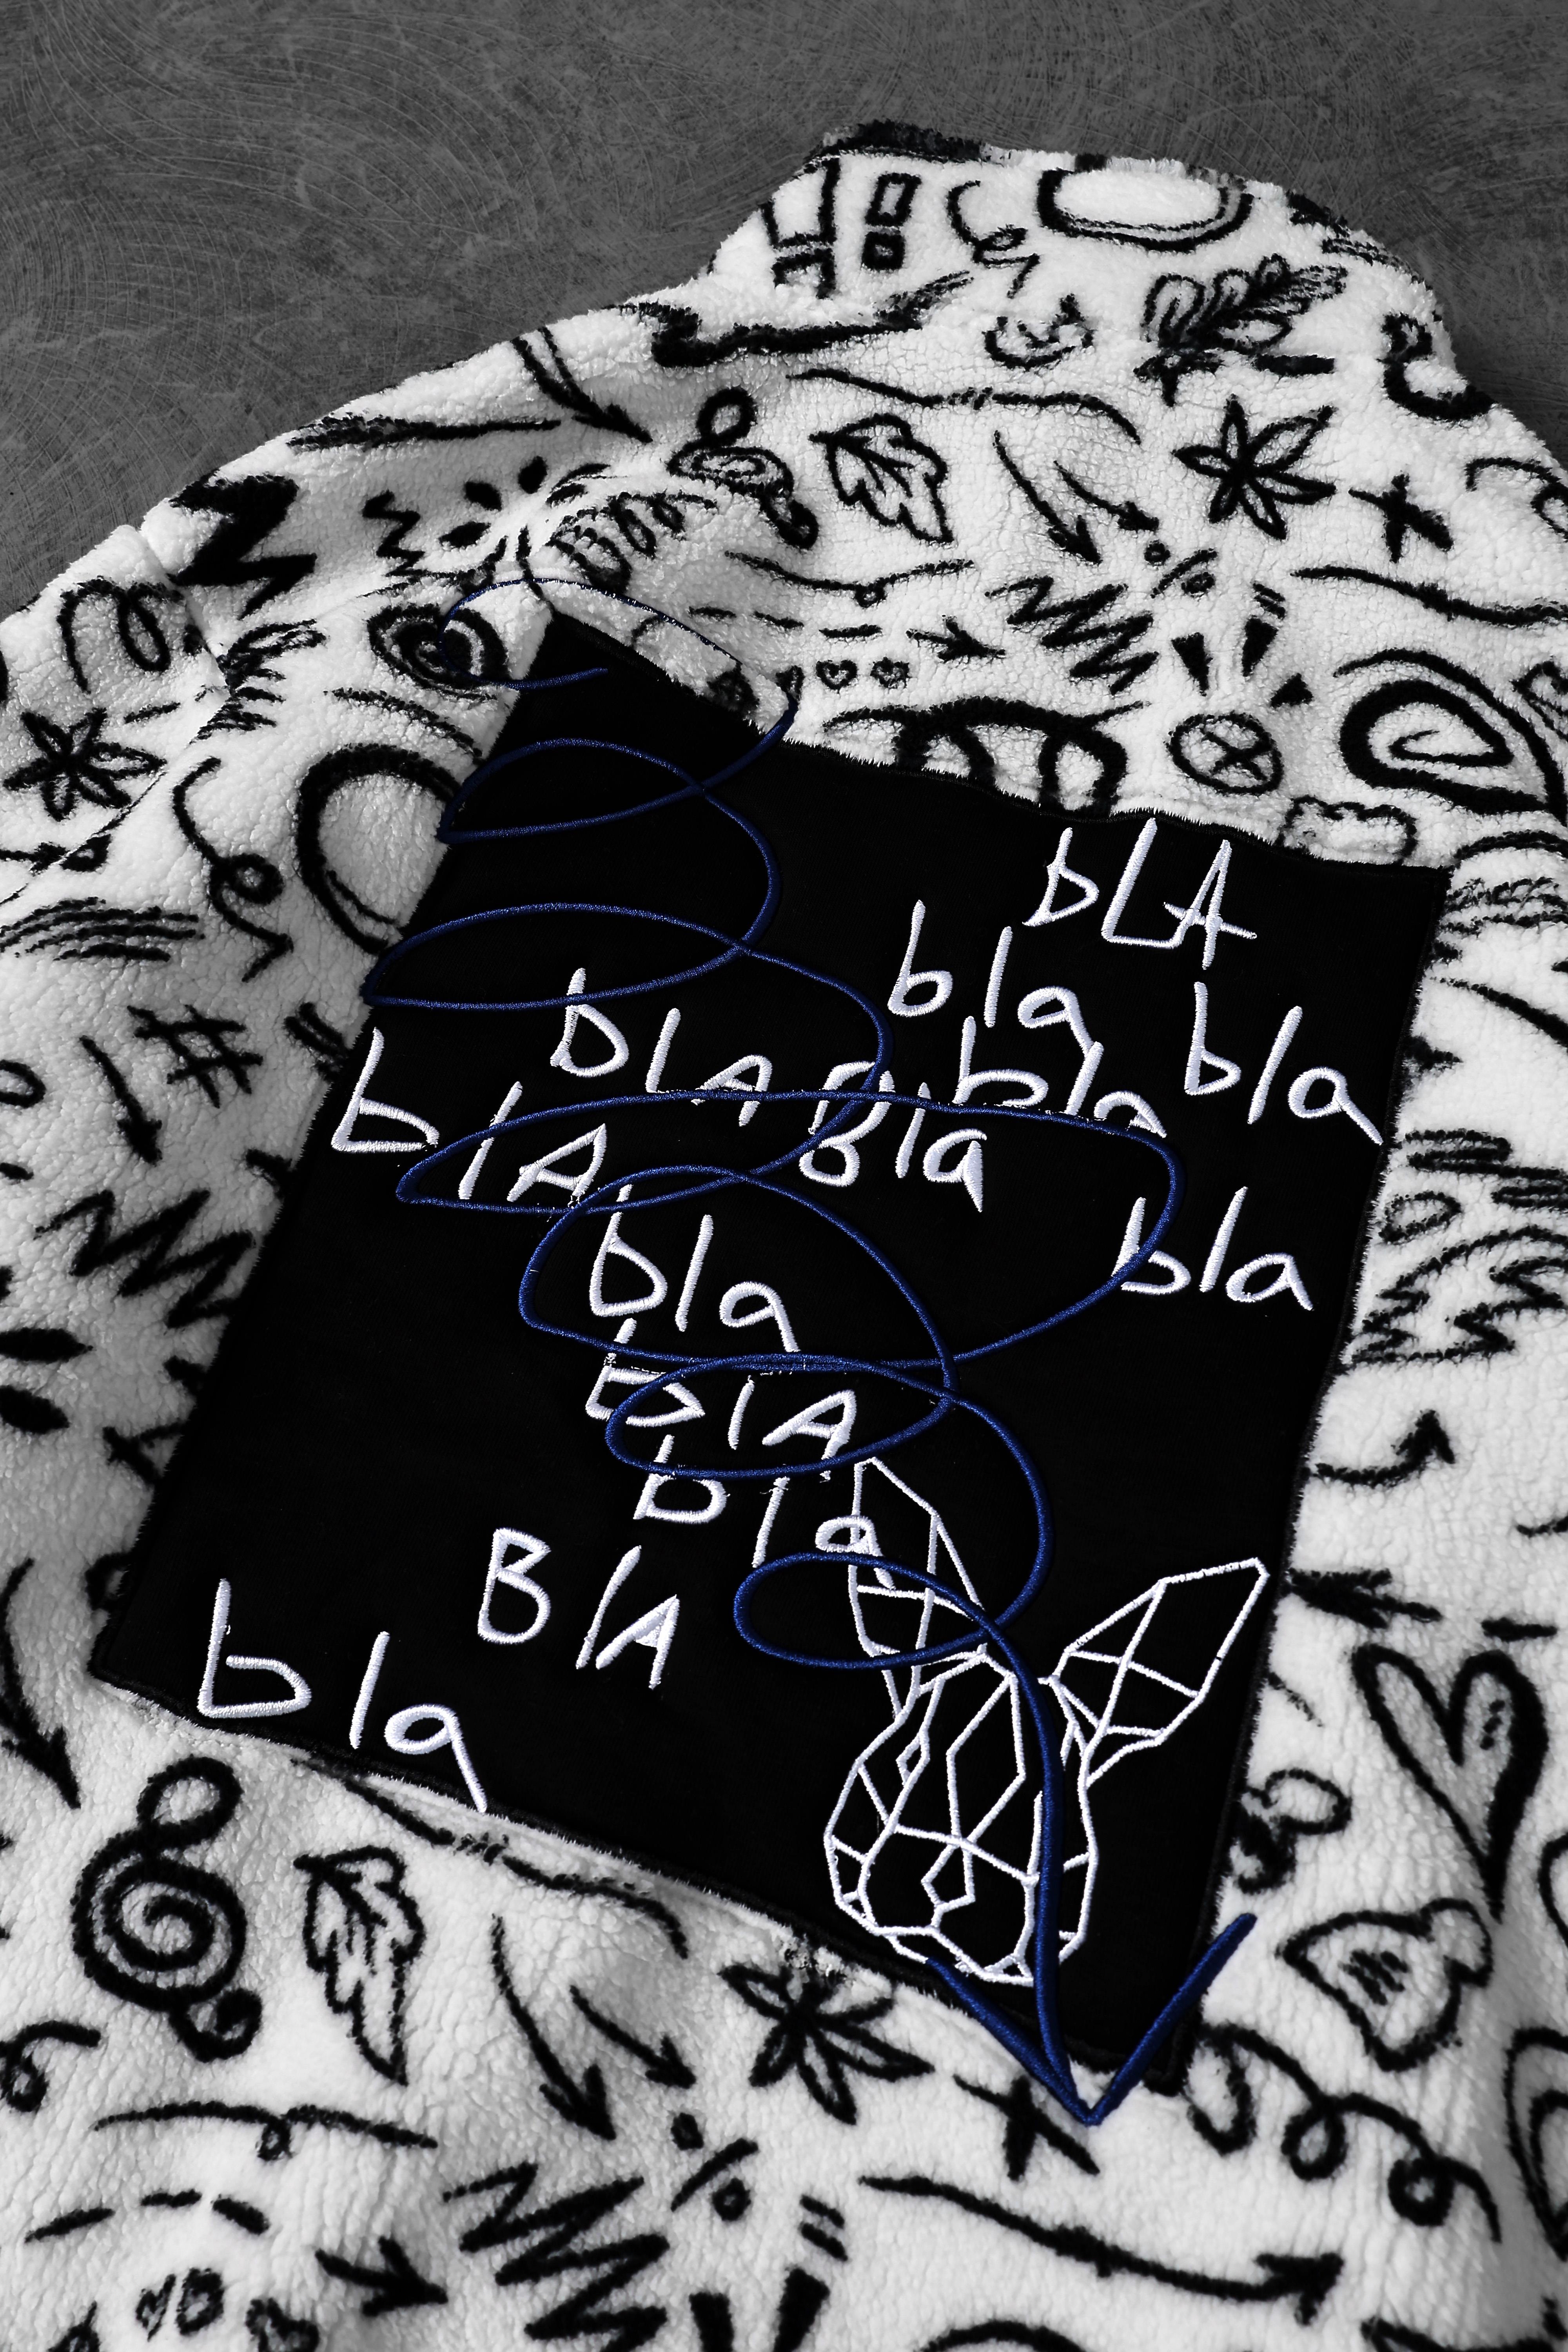 bLA
bla
bla
bLA
bla
blA
Bla
bla
bla
blA
bla
BlA
bla